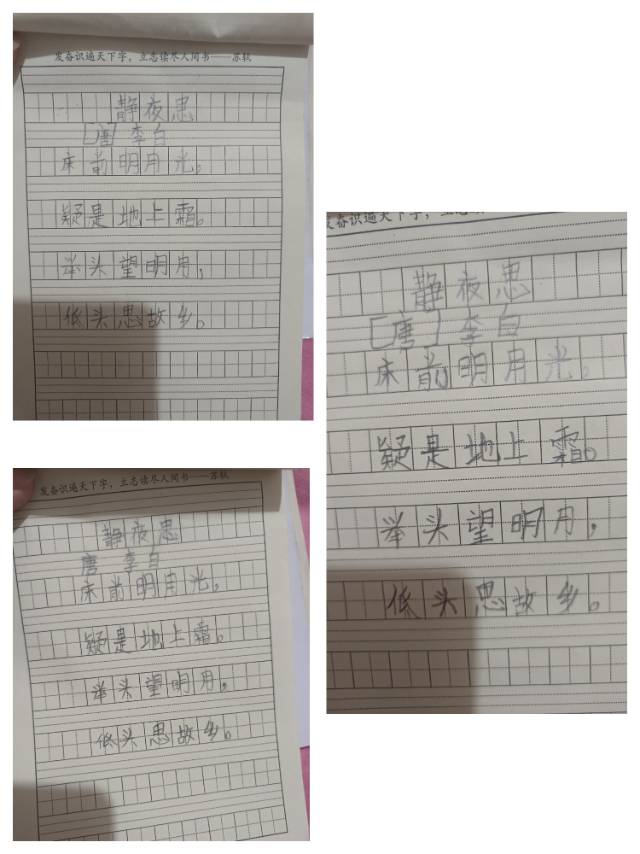 发奋识遍天下字，立志读尽人间书——苏轼
静夜思
[唐] 李白
床前明月光。
疑是地上霜。
举头望明月，
低头思故乡。
发奋识遍天下字，立志读尽人间书——苏轼
静夜思
唐 李白
床前明月光。
疑是地上霜。
举头望明月。
低头思故乡。
发奋识遍天下字，立志读尽人间书
静夜思
[唐] 李白
床前明月光。
疑是地上霜。
举头望明月，
低头思故乡。